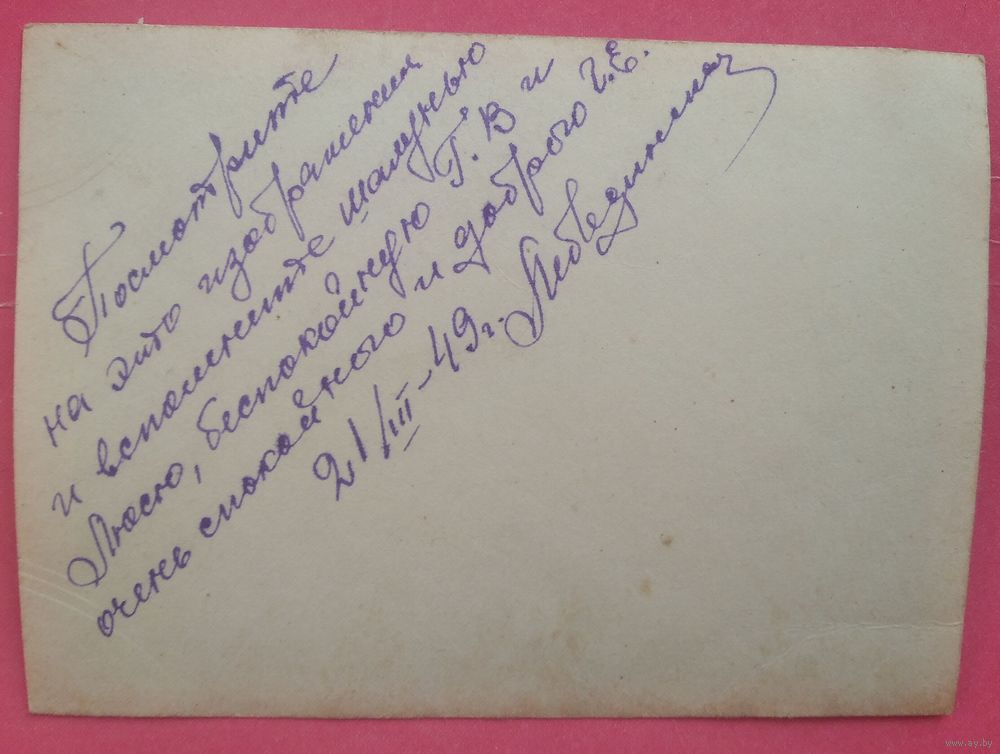 Посмотрите
на это изображения
и вспомните шалунью
Люсю, беспокойную Г.В и
очень спокойного и доброго Г.Е.
21/III-49г. Лебединская
www.ay.by